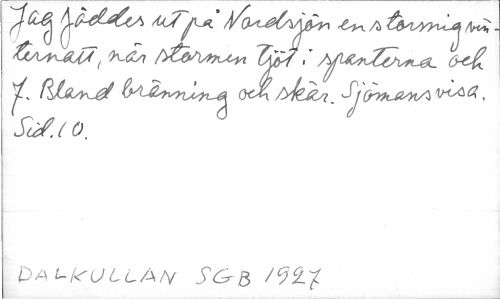 Jag föddes ut på Nordsjön en stormig vin-
ternatt, när stormen tjöt i spanterna och
7. Bland bränning och skär. Sjömansvisa.
Sid. 10.
DALKULLAN SGB 1927